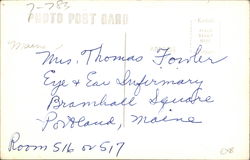 7-783
PHOTO POST CARD
Mrs. Thomas Fowler
Eye & Ear Infirmary
Bramhall Square
Portland, Maine
Room 516 or 517